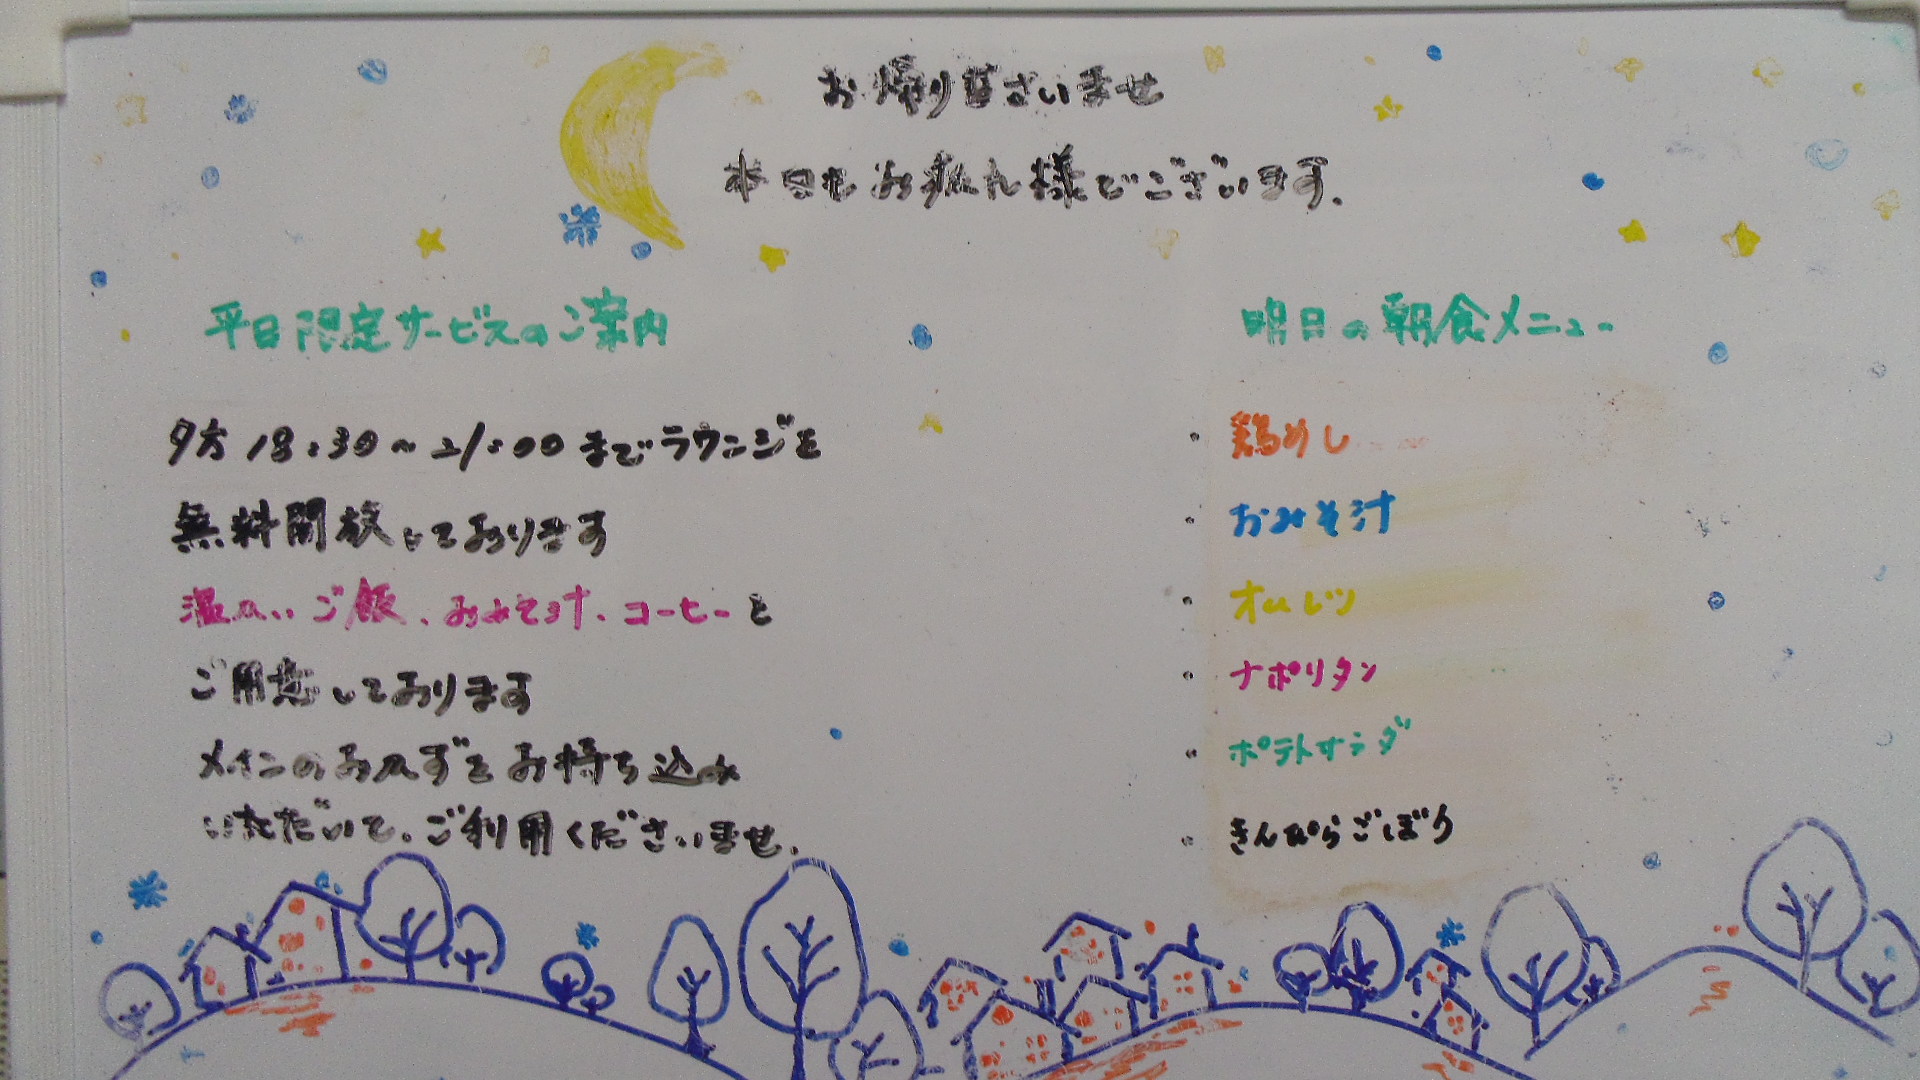 お帰りなさいませ
本日もお疲れ様でございます.
平日限定サービスのご案内
夕方 18:30~21:00までラウンジを
無料開放しております
温かいご飯、おみそ汁、コーヒーを
ご用意しております
メインのおかずをお持ち込み
いただいて、ご利用くださいませ.
明日の朝食メニュー
・鶏めし
・おみそ汁
・オムレツ
・ナポリタン
・ポテトサラダ
・きんぴらごぼう